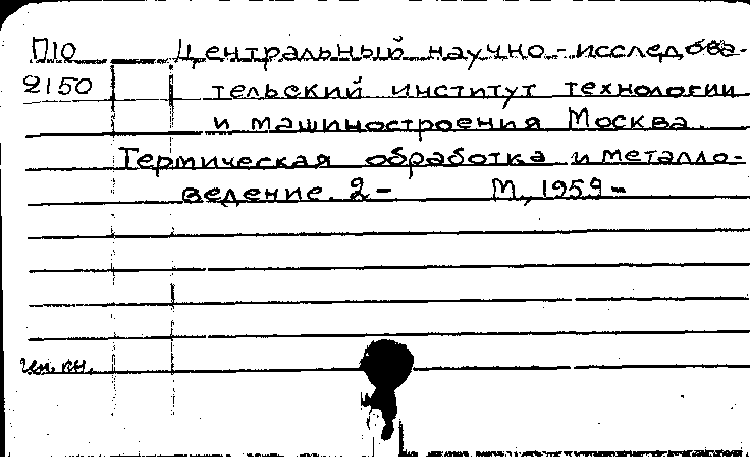 П10 Центральный научно-исследова-
2150 тельский институт технологии
и машиностроения Москва.
Термическая обработка и металло-
ведение. 2- М., 1959-
чит. кн.